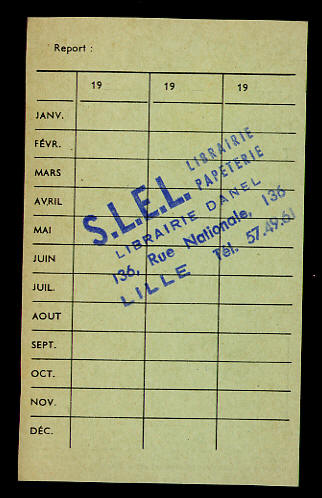 Report :
19 19 19
JANV.
FÉVR.
MARS
AVRIL
MAI
JUIN
JUIL.
AOUT
SEPT.
OCT.
NOV.
DÉC.
S.L.E.L. LIBRAIRIE
PAPETERIE
LIBRAIRIE DANEL
136, Rue Nationale, 136
LILLE Tél. 57.49.61